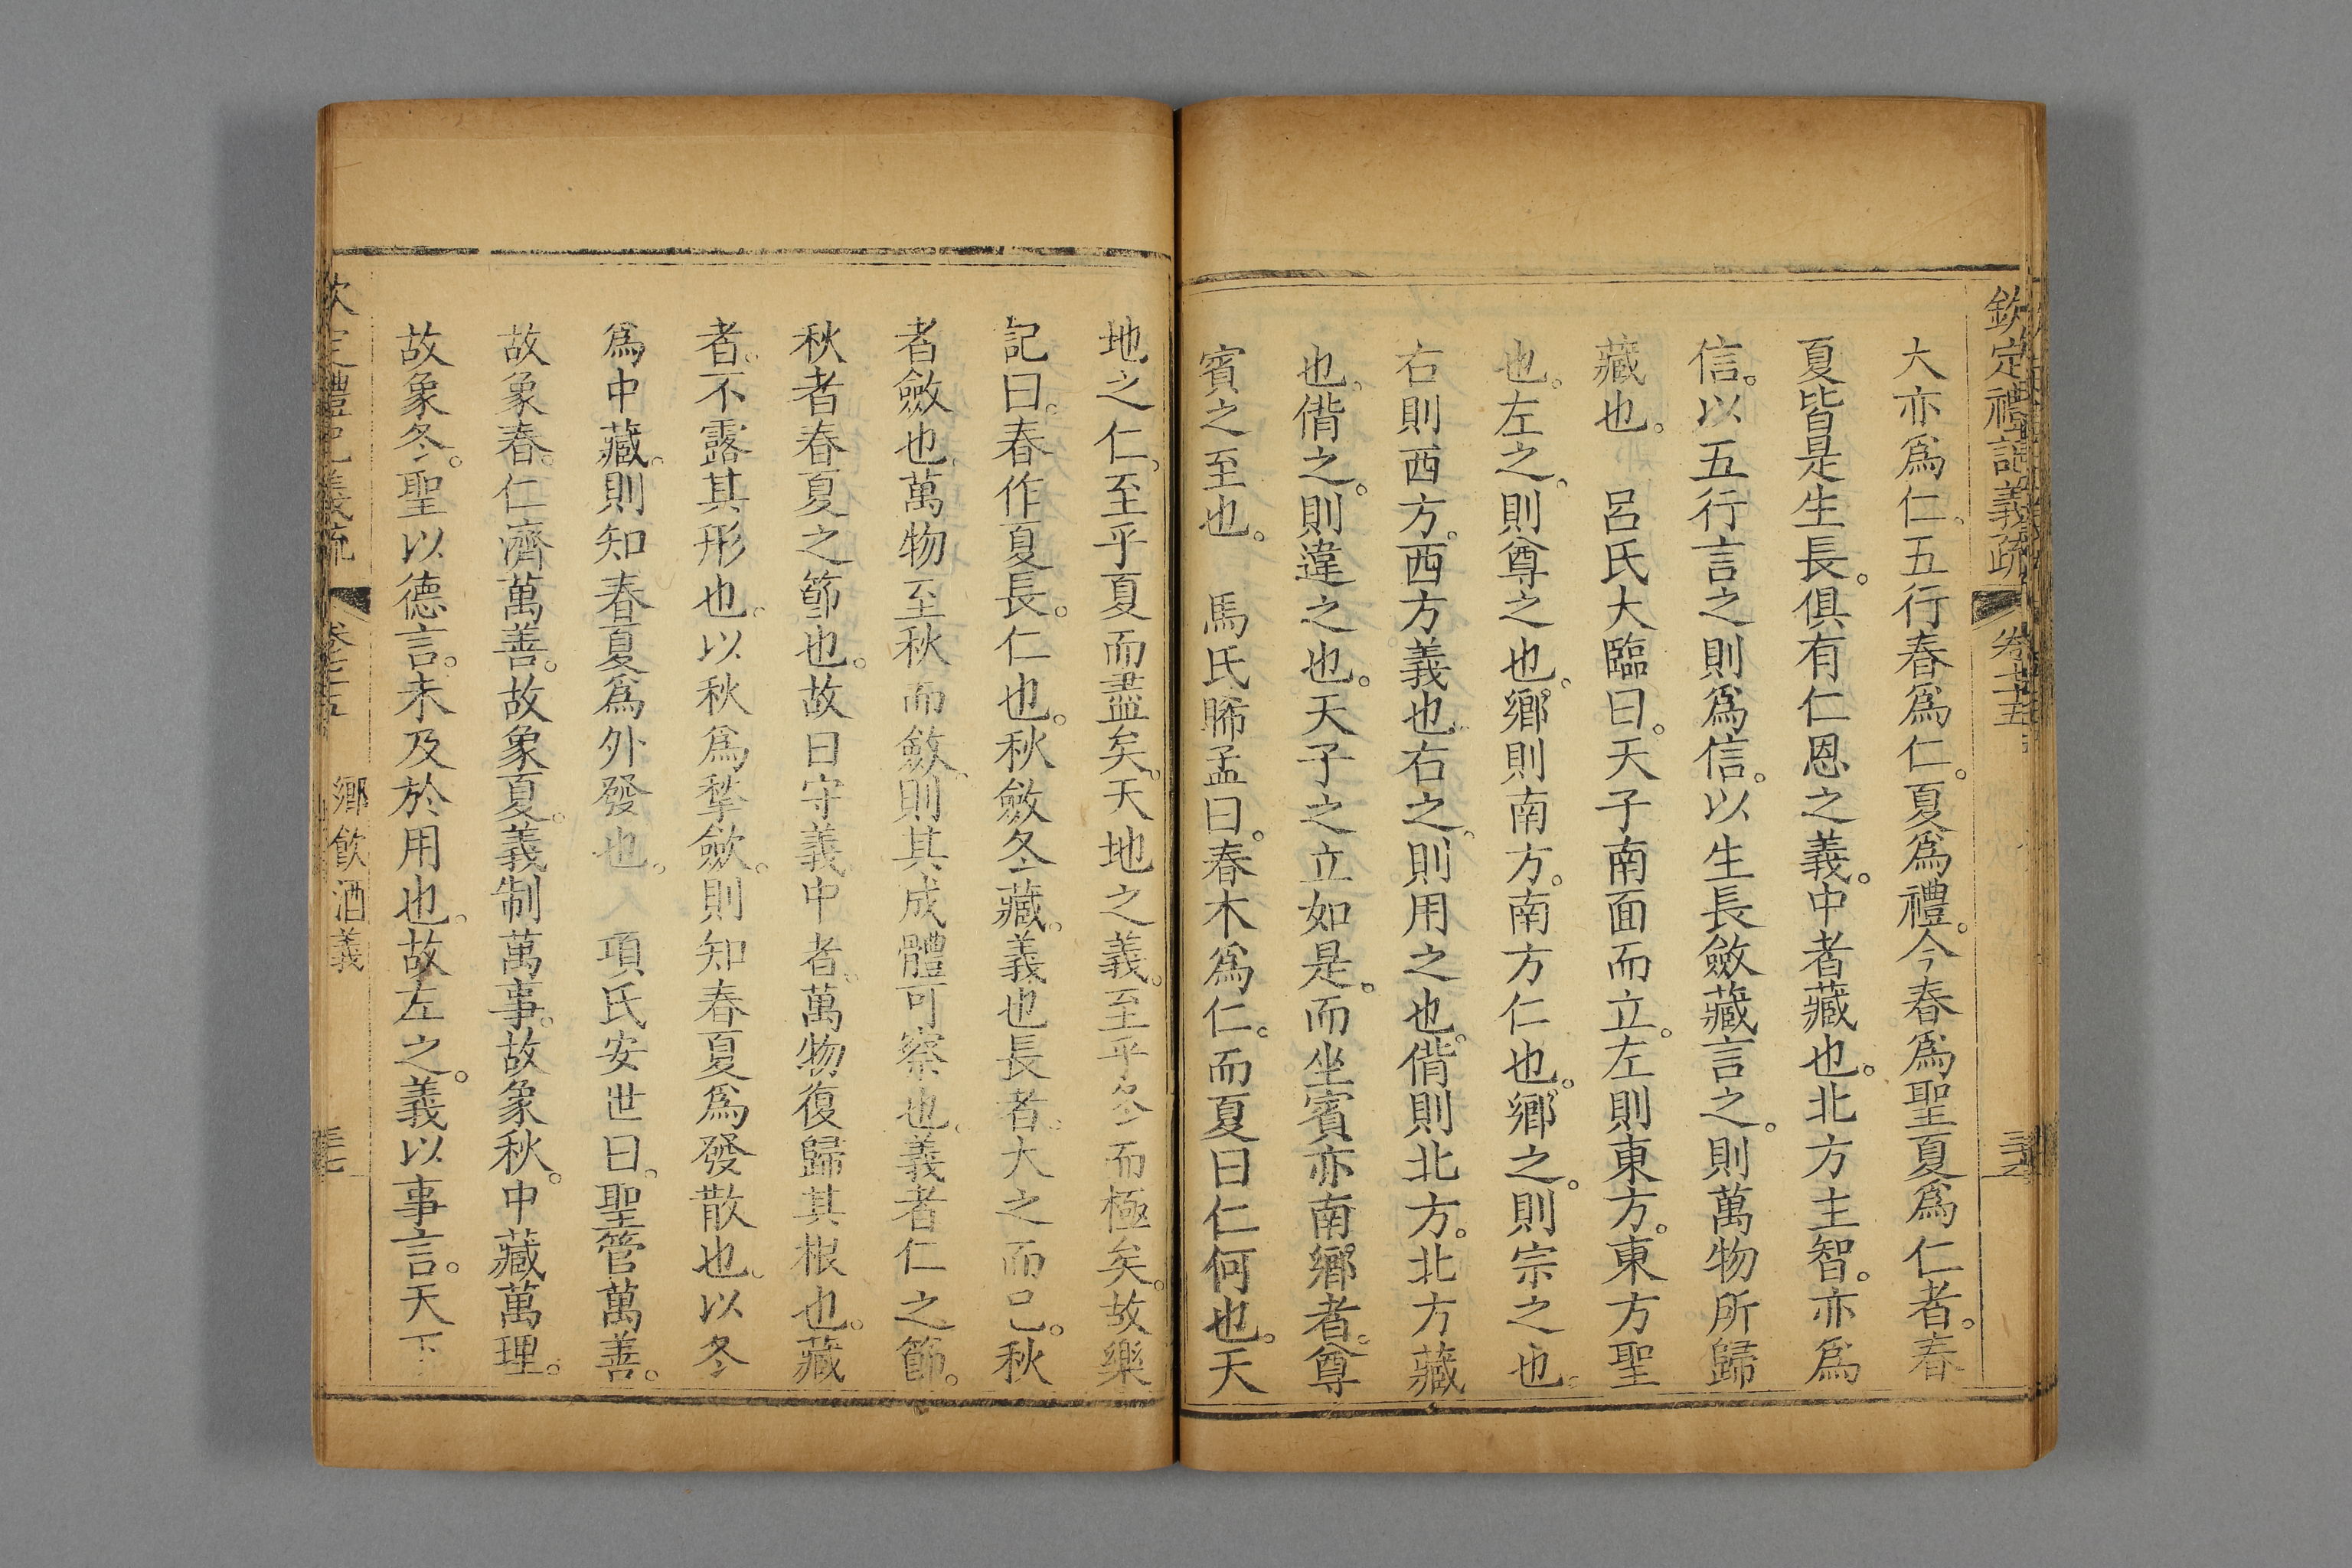 欽定禮記義疏 卷七十五
大亦爲仁。五行春爲仁。夏爲禮。今春爲聖夏爲仁者。春
夏皆是生長。俱有仁恩之義。中者藏也。北方主智。亦爲
信。以五行言之則爲信。以生長斂藏言之。則萬物所歸
藏也。 呂氏大臨曰。天子南面而立。左則東方。東方聖
也。左之。則尊之也。鄉則南方。南方仁也。鄉之。則宗之也。
右則西方。西方義也。右之。則用之也。偝則北方。北方藏
也。偝之。則違之也。天子之立如是。而坐賓亦南鄉者。尊
賓之至也。 馬氏晞孟曰。春木爲仁。而夏曰仁何也。天
地之仁。至乎夏而盡矣。天地之義。至乎冬而極矣。故樂
記曰。春作夏長。仁也。秋斂冬藏。義也長者。大之而已。秋
者斂也。萬物至秋而斂。則其成體可察也。義者仁之節。
秋者春夏之節也。故曰守義。中者。萬物復歸其根也。藏
者。不露其形也。以秋爲揫斂。則知春夏爲發散也。以冬
爲中藏。則知春夏爲外發也。 項氏安世曰。聖管萬善。
故象春。仁濟萬善。故象夏。義制萬事。故象秋。中藏萬理。
故象冬。聖以德言。未及於用也。故左之。義以事言。天下
定禮記義疏 鄉飲酒義